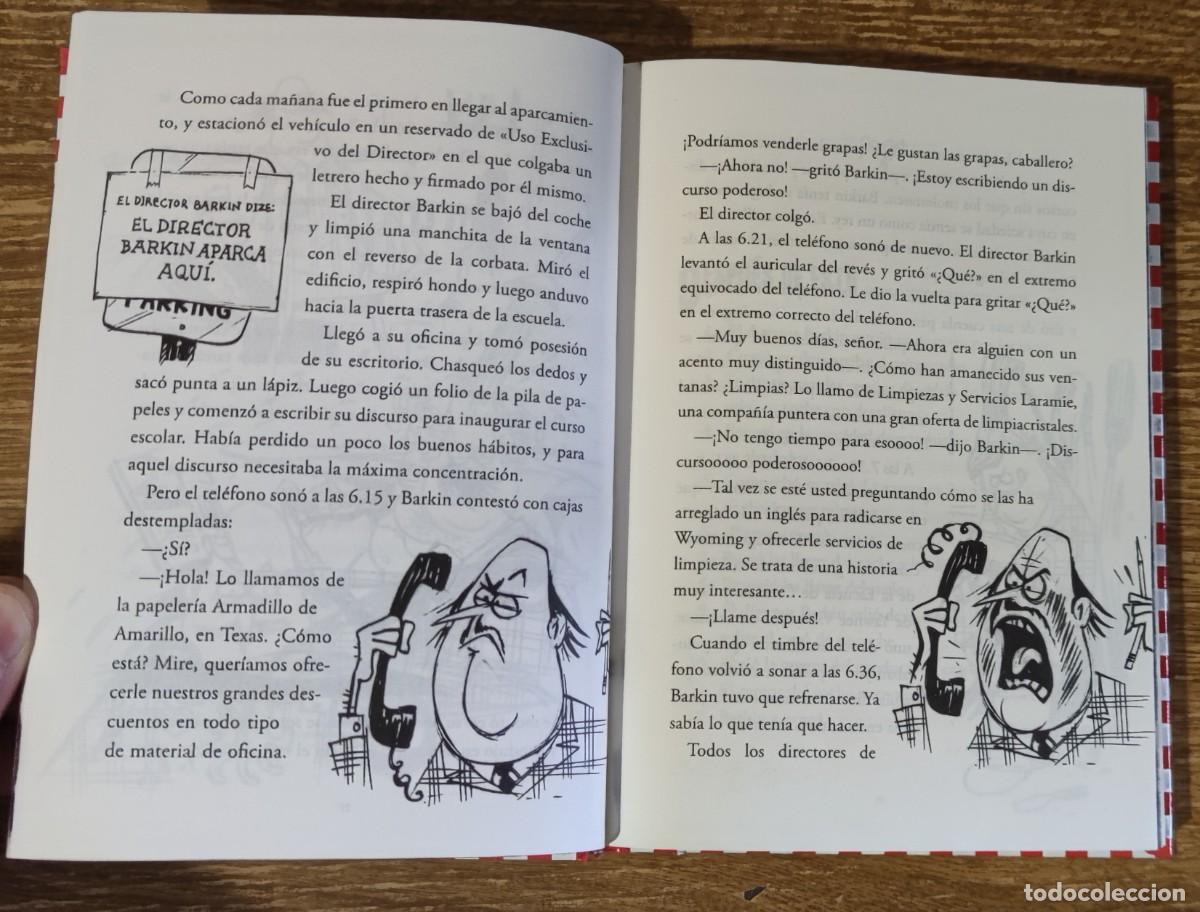 Como cada mañana fue el primero en llegar al aparcamien-
to, y estacionó el vehículo en un reservado de «Uso Exclusi-
vo del Director» en el que colgaba un
letrero hecho y firmado por él mismo.
El director Barkin se bajó del coche
y limpió una manchita de la ventana
con el reverso de la corbata. Miró el
edificio, respiró hondo y luego anduvo
hacia la puerta trasera de la escuela.
EL DIRECTOR BARKIN DIZE:
EL DIRECTOR
BARKIN APARCA
AQUÍ.
PARKING
Llegó a su oficina y tomó posesión
de su escritorio. Chasqueó los dedos y
sacó punta a un lápiz. Luego cogió un folio de la pila de pa-
peles y comenzó a escribir su discurso para inaugurar el curso
escolar. Había perdido un poco los buenos hábitos, y para
aquel discurso necesitaba la máxima concentración.
Pero el teléfono sonó a las 6.15 y Barkin contestó con cajas
destempladas:
—¿Sí?
—¡Hola! Lo llamamos de
la papelería Armadillo de
Amarillo, en Texas. ¿Cómo
está? Mire, queríamos ofre-
cerle nuestros grandes des-
cuentos en todo tipo
de material de oficina.
¡Podríamos venderle grapas! ¿Le gustan las grapas, caballero?
—¡Ahora no! —gritó Barkin—. ¡Estoy escribiendo un dis-
curso poderoso!
El director colgó.
A las 6.21, el teléfono sonó de nuevo. El director Barkin
levantó el auricular del revés y gritó «¿Qué?» en el extremo
equivocado del teléfono. Le dio la vuelta para gritar «¿Qué?»
en el extremo correcto del teléfono.
—Muy buenos días, señor. —Ahora era alguien con un
acento muy distinguido—. ¿Cómo han amanecido sus ven-
tanas? ¿Limpias? Lo llamo de Limpiezas y Servicios Laramie,
una compañía puntera con una gran oferta de limpiacristales.
—¡No tengo tiempo para esoooo! —dijo Barkin—. ¡Dis-
cursooooo poderosoooooo!
—Tal vez se esté usted preguntando cómo se las ha
arreglado un inglés para radicarse en
Wyoming y ofrecerle servicios de
limpieza. Se trata de una historia
muy interesante...
—¡Llame después!
Cuando el timbre del telé-
fono volvió a sonar a las 6.36,
Barkin tuvo que refrenarse. Ya
sabía lo que tenía que hacer.
Todos los directores de
todocoleccion